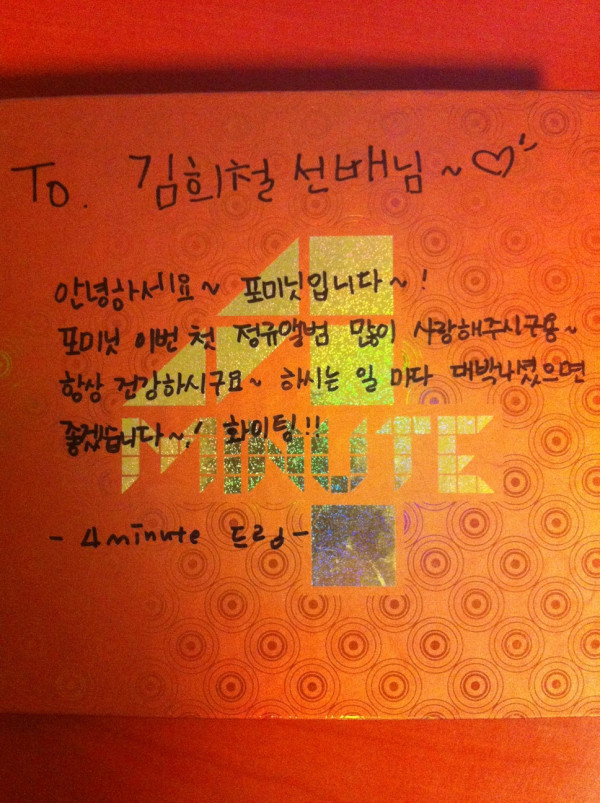 To. 김희철 선배님~♡
안녕하세요~ 포미닛입니다~!
포미닛 이번 첫 정규앨범 많이 사랑해주시구용~
항상 건강하시구요~ 하시는 일 마다 대박나셨으면
좋겠습니다~! 화이팅!!
4MINUTE
- 4minute 드림-